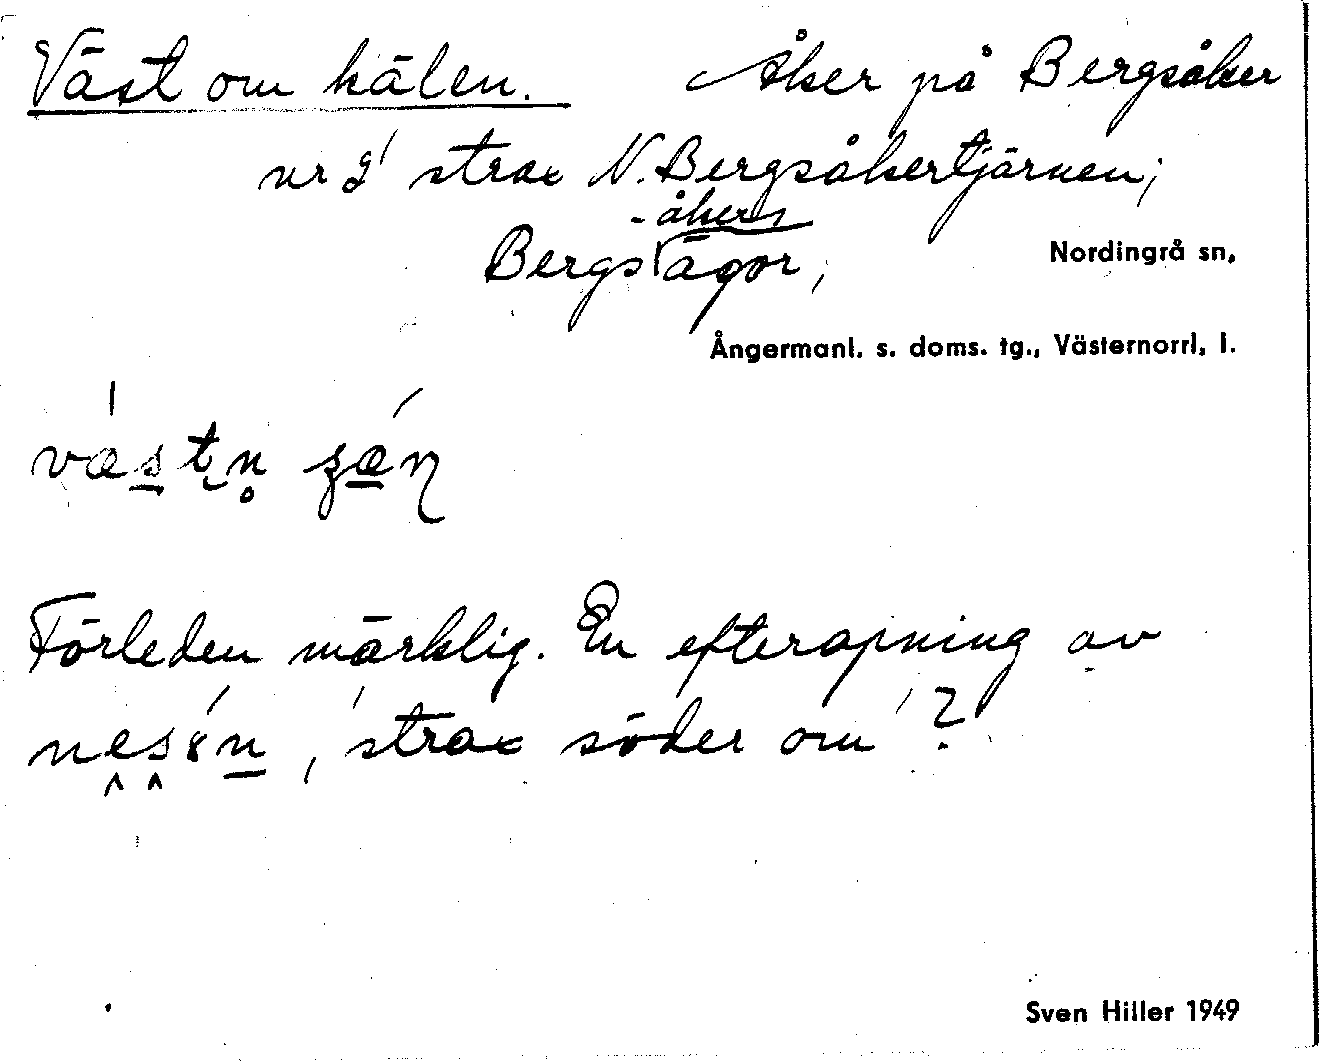 Väst om kälen. Åker på Bergsåker
nr 2 strax N. Bergsåkertjärnen;
-åkers
Bergsägor, Nordingrå sn,
Ångermanl. s. doms. tg., Västernorrl. l.
Förleden märklig. En efterapning av
strax söder om?
Sven Hiller 1949